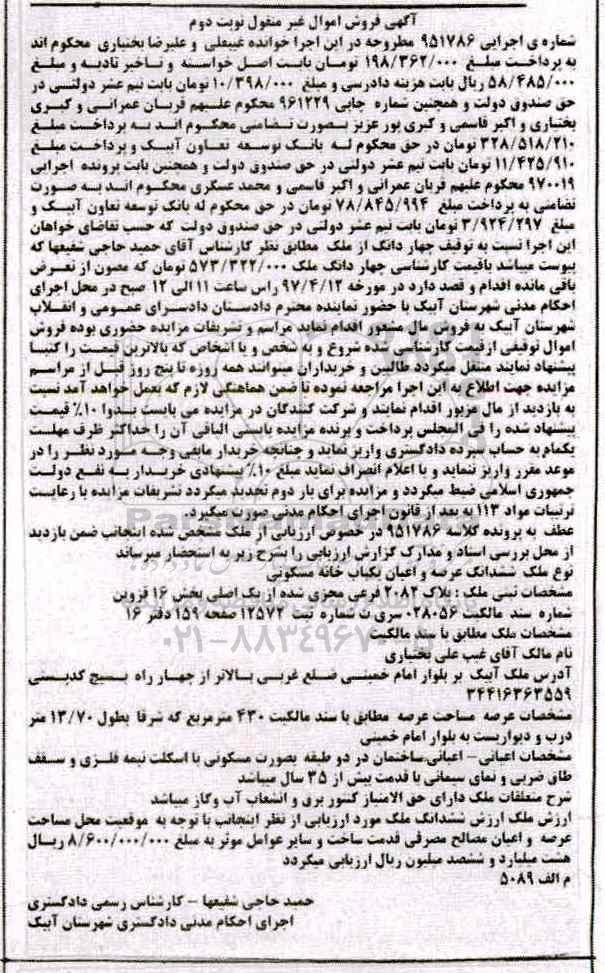 آگهی فروش اموال غیر منقول نوبت دوم
شماره ی اجرایی ۹۵۱۷۸۶ مطروحه در این اجرا خوانده غیبعلی و علیرضا بختیاری محکوم اند
به پرداخت مبلغ ۱۹۸/۳۶۲/۰۰۰ تومان بابت اصل خواسته و تاخیر تادیه و مبلغ
۵۸/۴۸۵/۰۰۰ ریال بابت هزینه دادرسی و مبلغ ۱۰/۳۹۸/۰۰۰ تومان بابت نیم عشر دولتی در
حق صندوق دولت و همچنین شماره چاپی ۹۶۱۲۲۹ محکوم علیهم قربان عمرانی و کبری
بختیاری و اکبر قاسمی و کبری پور عزیز بصورت تضامنی محکوم اند به پرداخت مبلغ
۳۲۸/۵۱۸/۲۱۰ تومان در حق محکوم له بانک توسعه تعاون آبیک و پرداخت مبلغ
۱۱/۴۲۵/۹۱۰ تومان بابت نیم عشر دولتی در حق صندوق دولت و همچنین بابت پرونده اجرایی
۹۷۰۰۱۹ محکوم علیهم قربان عمرانی و اکبر قاسمی و محمد عسکری محکوم اند به صورت
تضامنی به پرداخت مبلغ ۷۸/۸۴۵/۹۹۴ تومان در حق محکوم له بانک توسعه تعاون آبیک و
مبلغ ۳/۹۲۴/۲۹۷ تومان بابت نیم عشر دولتی در حق صندوق دولت که حسب تقاضای خواهان
این اجرا نسبت به توقیف چهار دانگ از ملک مطابق نظر کارشناس آقای حمید حاجی شفیعها که
پیوست میباشد باقیمت کارشناسی چهار دانگ ملک ۵۷۳/۳۲۲/۰۰۰ تومان که مصون از تعرض
باقی مانده اقدام و قصد دارد در مورخه ۹۷/۴/۱۲ راس ساعت ۱۱ الی ۱۲ صبح در محل اجرای
احکام مدنی شهرستان آبیک با حضور نماینده محترم دادستان دادسرای عمومی و انقلاب
شهرستان آبیک به فروش مال مشعور اقدام نماید مراسم و تشریفات مزایده حضوری بوده فروش
اموال توقیفی ازقیمت کارشناسی شده شروع و به شخص و یا اشخاص که بالاترین قیمت را کتبا
پیشنهاد نمایند منتقل میگردد طالبین و خریداران میتوانند همه روزه تا پنج روز قبل از مراسم
مزایده جهت اطلاع به این اجرا مراجعه نموده تا ضمن هماهنگی لازم که بعمل خواهد آمد نسبت
به بازدید از مال مزبور اقدام نمایند و شرکت کنندگان در مزایده می بایست بدوا ۱۰٪ قیمت
پیشنهاد شده را فی المجلس پرداخت و برنده مزایده بایستی الباقی آن را حداکثر ظرف مهلت
یکماه به حساب سپرده دادگستری واریز نماید و چنانچه خریدار مابقی وجه مورد نظر را در
موعد مقرر واریز ننماید و یا اعلام انصراف نماید مبلغ ۱۰٪ پیشنهادی خریدار به نفع دولت
جمهوری اسلامی ضبط میگردد و مزایده برای بار دوم تجدید میگردد تشریفات مزایده با رعایت
ترتیبات مواد ۱۱۳ به بعد از قانون اجرای احکام مدنی صورت میگیرد.
عطف به پرونده کلاسه ۹۵۱۷۸۶ در خصوص ارزیابی از ملک مشخص شده اینجانب ضمن بازدید
از محل بررسی اسناد و مدارک گزارش ارزیابی را بشرح زیر به استحضار میرساند
نوع ملک ششدانگ عرصه و اعیان یکباب خانه مسکونی
مشخصات ثبتی ملک : پلاک ۲۰۸۲ فرعی مجزی شده از یک اصلی بخش ۱۶ قزوین
شماره سند مالکیت ۰۲۸۰۵۶ سری ث شماره ثبت ۱۲۵۷۲ صفحه ۱۵۹ دفتر ۱۶
مشخصات ملک مطابق با سند مالکیت
نام مالک آقای غیب علی بختیاری
آدرس ملک آبیک بر بلوار امام خمینی ضلع غربی بالاتر از چهار راه بسیج کدپستی
۳۴۴۱۶۳۶۳۵۵۹
مشخصات عرصه مساحت عرصه مطابق با سند مالکیت ۴۳۰ مترمربع که شرقا بطول ۱۳/۷۰ متر
درب و دیواریست به بلوار امام خمینی
مشخصات اعیانی – اعیانی ساختمان در دو طبقه بصورت مسکونی با اسکلت نیمه فلزی و سقف
طاق ضربی و نمای سیمانی با قدمت بیش از ۳۵ سال میباشد
شرح متعلقات ملک دارای حق الامتیاز کنتور برق و انشعاب آب وگاز میباشد
ارزش ملک ارزش ششدانگ ملک مورد ارزیابی از نظر اینجانب با توجه به موقعیت محل مساحت
عرصه و اعیان مصالح مصرفی قدمت ساخت و سایر عوامل موثر به مبلغ ۸/۶۰۰/۰۰۰/۰۰۰ ریال
هشت میلیارد و ششصد میلیون ریال ارزیابی میگردد
م الف ۵۰۸۹
حمید حاجی شفیعها – کارشناس رسمی دادگستری
اجرای احکام مدنی دادگستری شهرستان آبیک
۰۲۱-۸۸۳۴۹۶۷۰